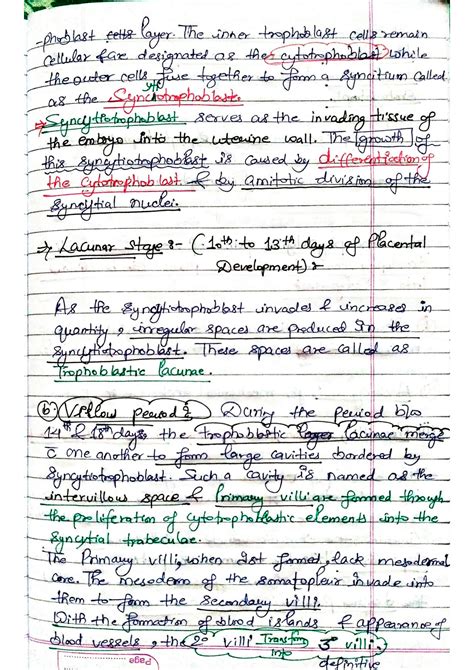 -phoblast cells layer. The inner trophoblast cells remain
cellular & are designated as the cytotrophoblast while
the outer cells fuse together to form a syncitium called
as the Syncytiotrophoblast.
⇒ Syncytiotrophoblast serves as the invading tissue of
the embryo into the uterine wall. The growth of
this syncytiotrophoblast is caused by differentiation of
the cytotrophoblast & by amitotic division of the
syncytial nuclei.
⇒ Lacunar stage :- (10th to 13th days of Placental
Development) :-
As the syncytiotrophoblast invades & increases in
quantity, irregular spaces are produced in the
syncytiotrophoblast. These spaces are called as
Trophoblastic lacunae.
(b) Villous period : During the period b/w
14th & 18th days, the trophoblastic layer lacunae merge
c one another to form large cavities bordered by
syncytiotrophoblast. Such a cavity is named as the
intervillous space & Primary villi are formed through
the proliferation of cytotrophoblastic elements into the
syncytial trabeculae.
The Primary villi, when 1st formed, lack mesodermal
core. The mesoderm of the somatopleur invade into
them to form the secondary villi.
With the formation of blood islands & appearance of
blood vessels, the 2° villi Transform into 3° villi,
definitive
Page